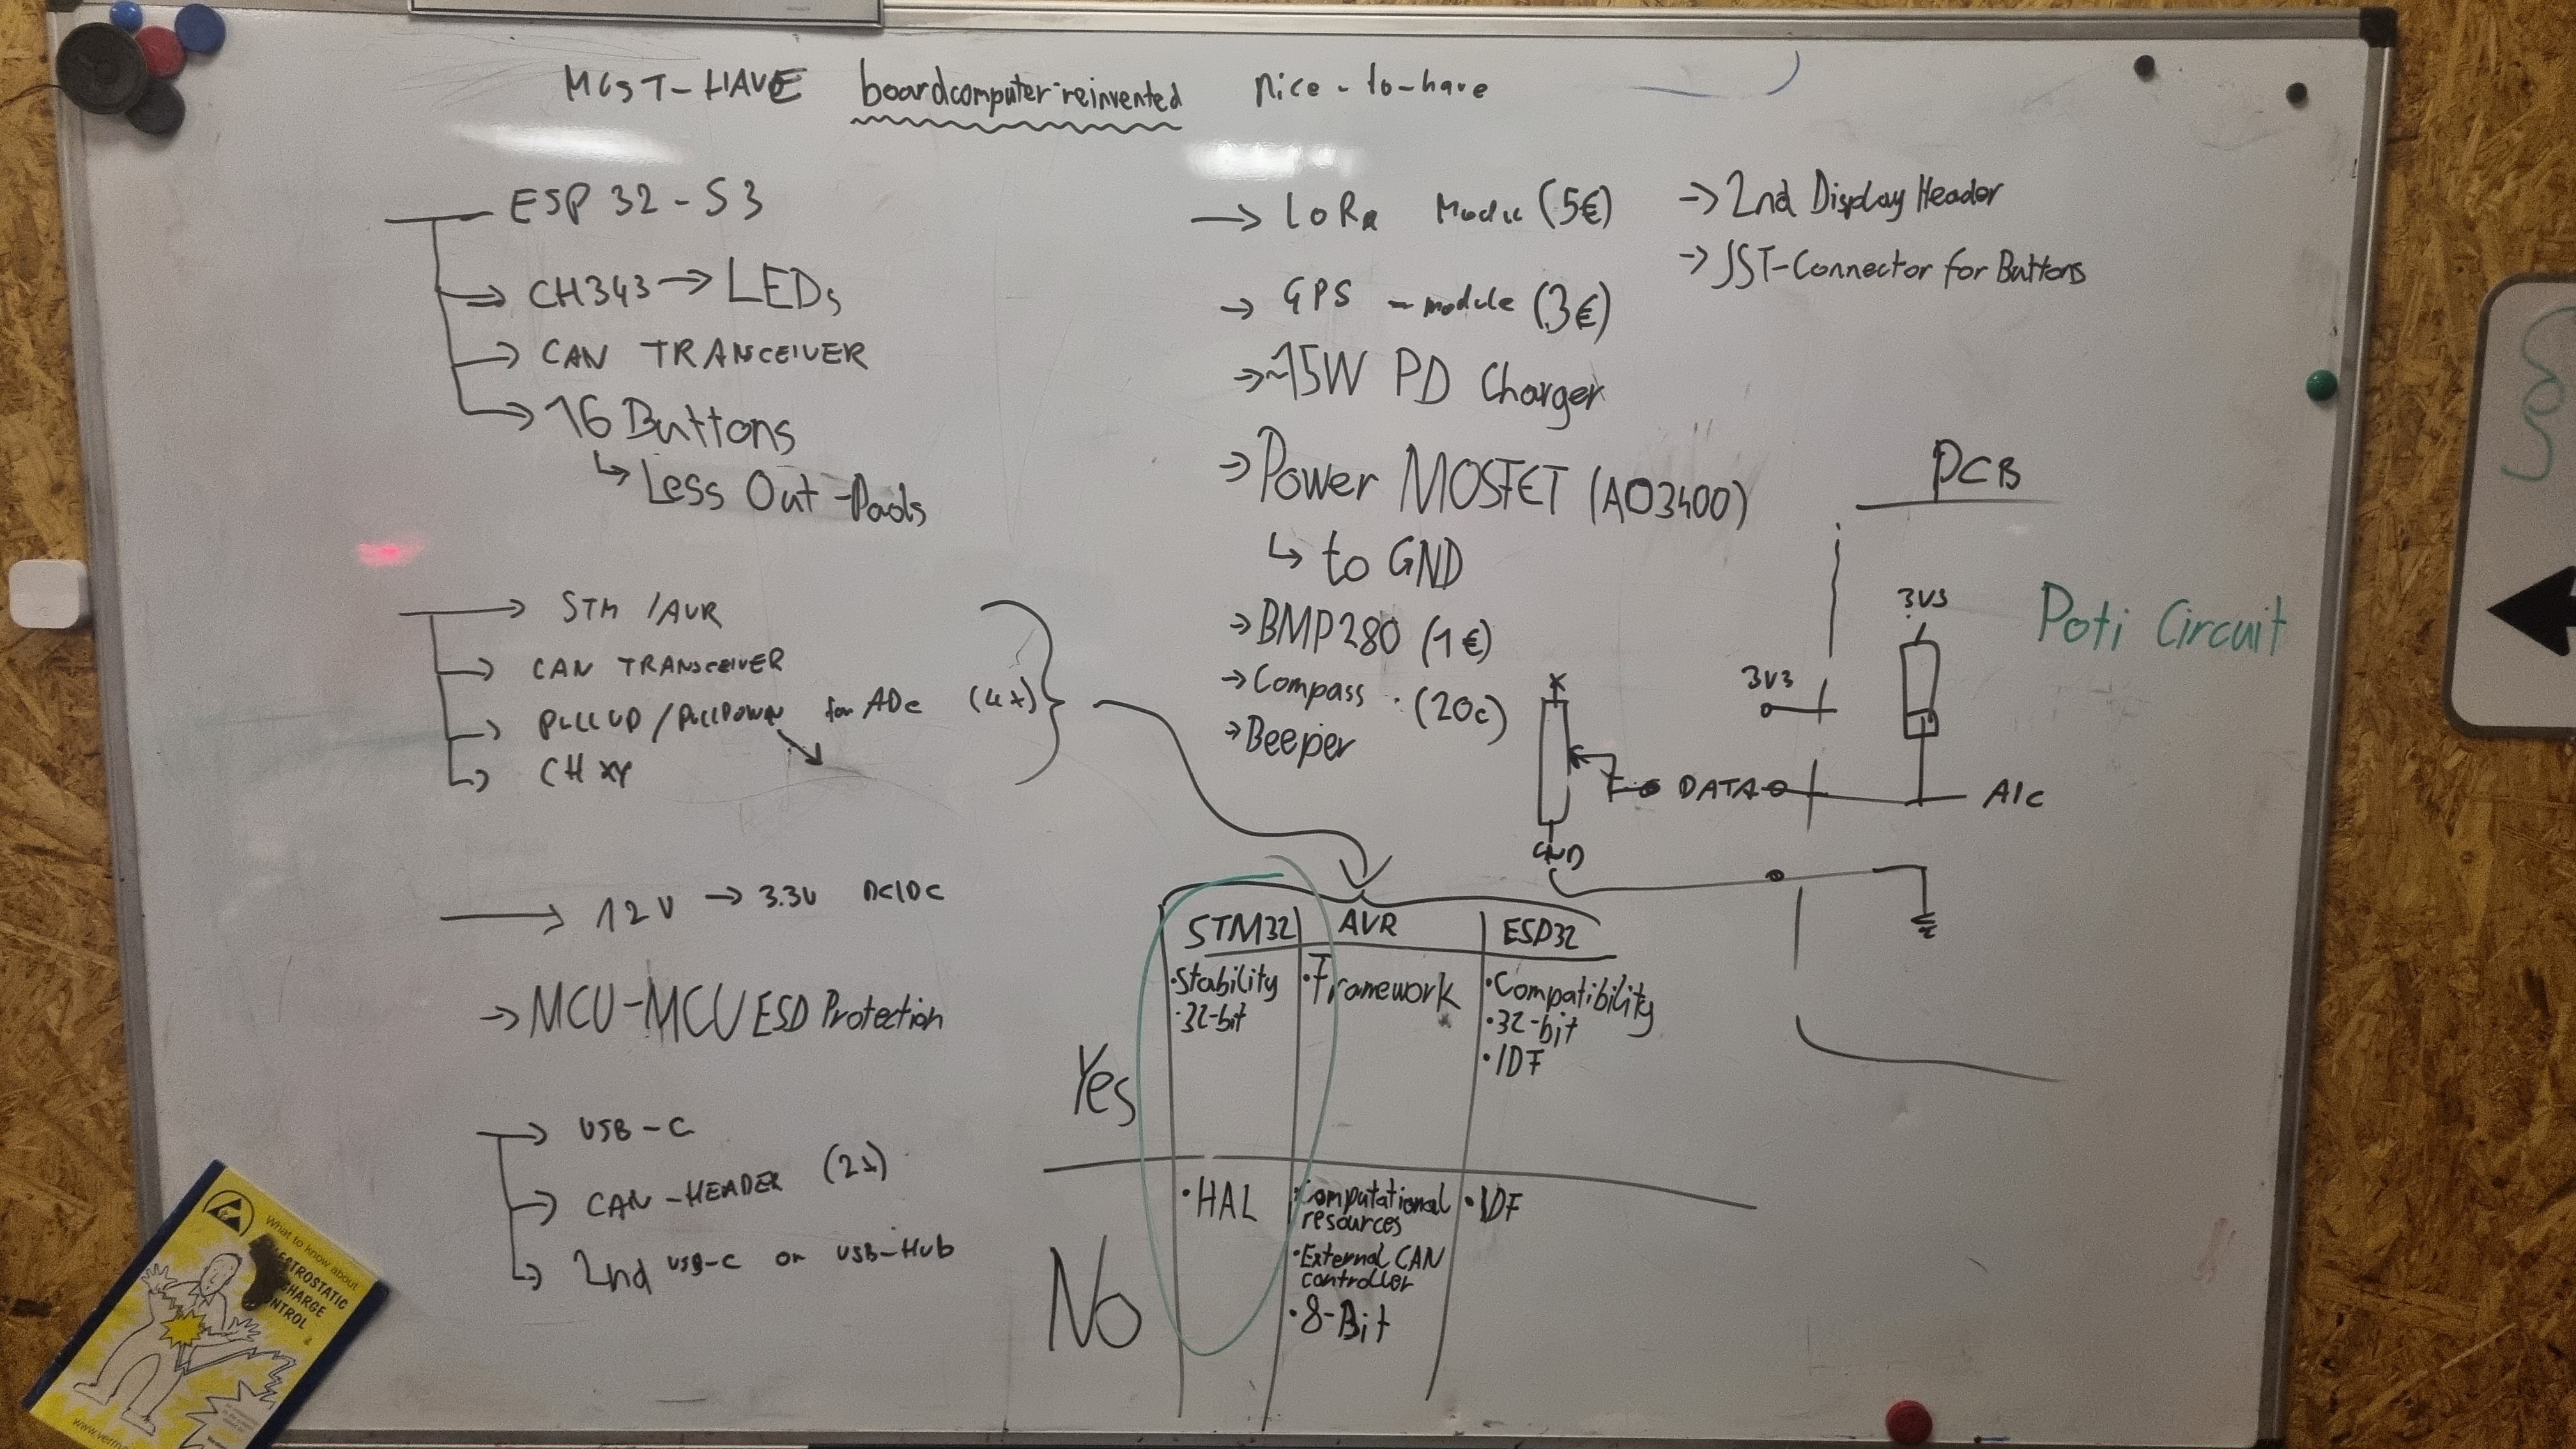 MUST-HAVE boardcomputer-reinvented nice-to-have
ESP32-S3
CH343 → LEDs
CAN TRANSCEIVER
16 Buttons
↳ Less Out-Pads
→ STM/AVR
→ CAN TRANSCEIVER
→ PULLUP/PULLDOWN for ADC (4x)
→ CH XY
→ 12V → 3.3V DC/DC
→ MCU-MCU ESD Protection
→ USB-C
→ CAN-HEADER (2x)
→ 2nd USB-C or USB-Hub
→ LoRa (5€)
→ GPS-module (3€)
→ ~15W PD Charger
→ Power MOSFET (AO3400)
↳ to GND
→ BMP280 (1€)
→ Compass (20c)
→ Beeper
→ 2nd Display Header
→ JST-Connector for Buttons
PCB
Poti Circuit
3V3
3V3
DATA
GND
STM32 AVR ESP32
Yes
• Stability
• 32-bit
• Framework
• Compatibility
• 32-bit
• IDF
No
• HAL
• Computational
resources
• External CAN
controller
• 8-Bit
• IDF
What to know about